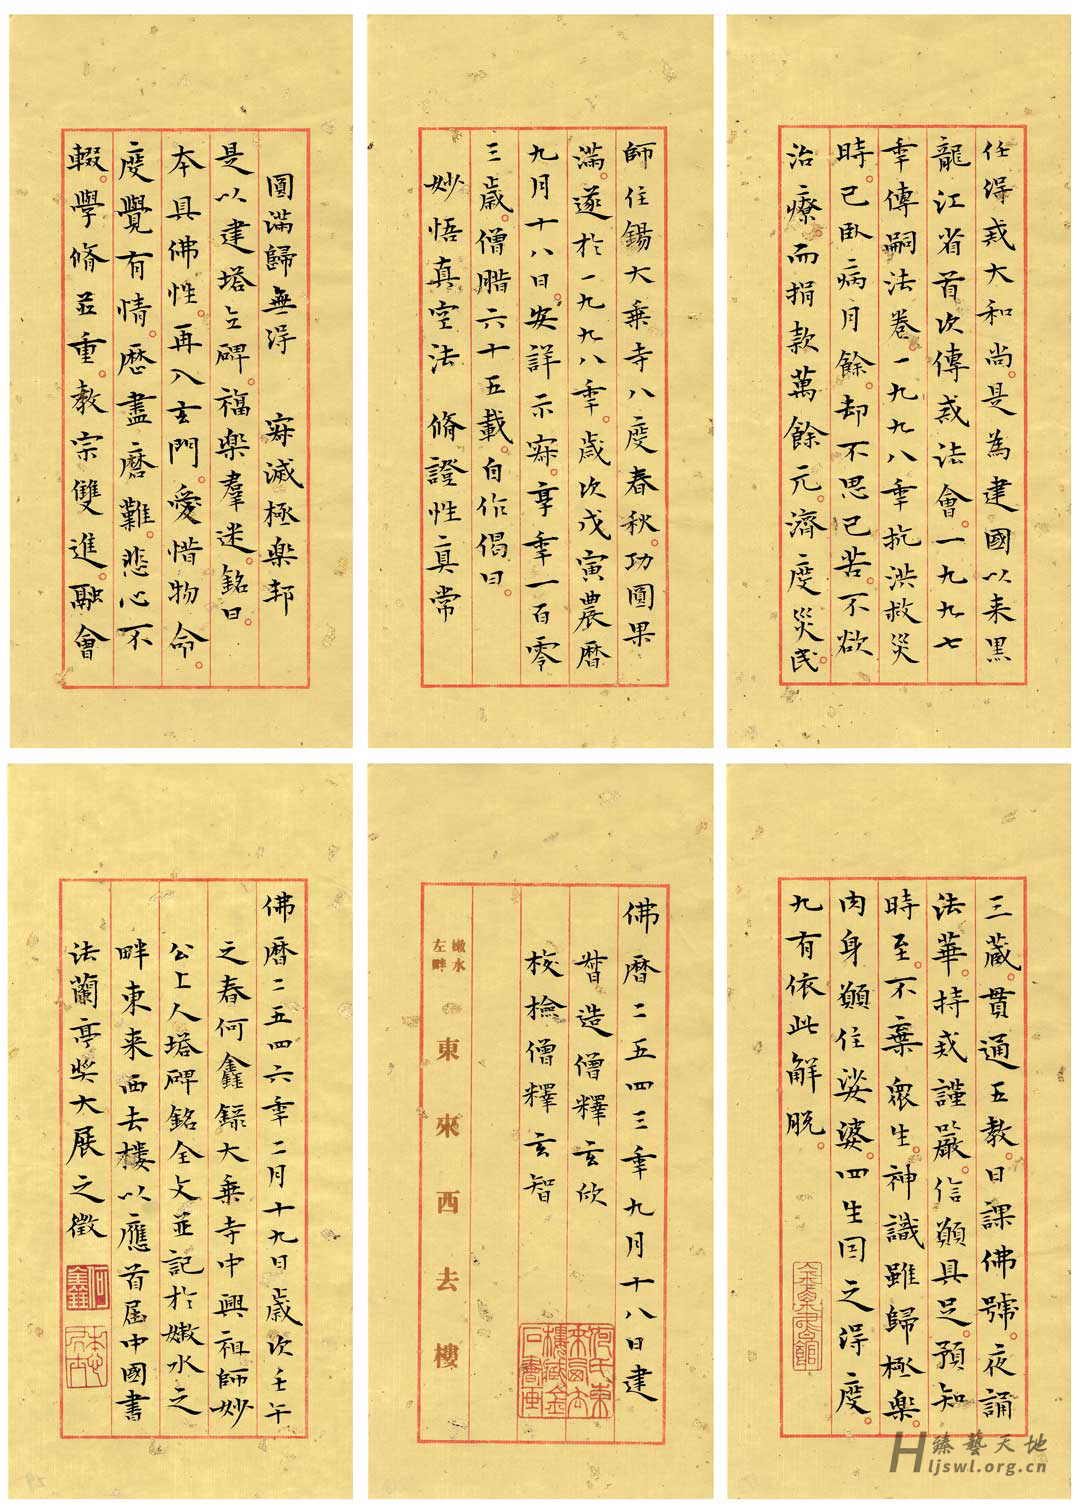 任得戒大和尚。是為建國以来黑
龍江省首次傳戒法會。一九九七
季傳嗣法卷。一九九八季抗洪救災
時。己臥病月餘。却不思己苦。不欲
治療。而捐款萬餘元。濟度災民。
師住錫大乘寺八度春秋。功圓果
滿。遂於一九九八季。歲次戊寅農曆
九月十八日。安詳示寂。享季一百零
三歲。僧臘六十五載。自作偈曰。
妙悟真空法 脩證性真常
圓滿歸無淂 寂滅極楽邦
是以建塔立碑。福楽羣迷。銘曰。
本具佛性。再入玄門。愛惜物命。
度覺有情。歷盡磨難。悲心不
輟。學脩並重。教宗雙進。融會
三藏。貫通五教。日課佛號。夜誦
法華。持戒謹嚴。信願具足。預知
時至。不棄衆生。神識雖歸極楽。
肉身願住娑婆。四生因之淂度。
九有依此解脫。
佛曆二五四三季九月十八日建
督造僧釋玄欣
校檢僧釋玄智
嫩水
左畔
東來西去樓
佛曆二五四六季二月十九日歲次壬午
之春何鑫錄大乘寺中興祖師妙
公上人塔碑銘全文並記於嫩水之
畔東来西去樓以應首屆中國書
法蘭亭奖大展之徵
何鑫
臻藝天地
Hljswl.org.cn